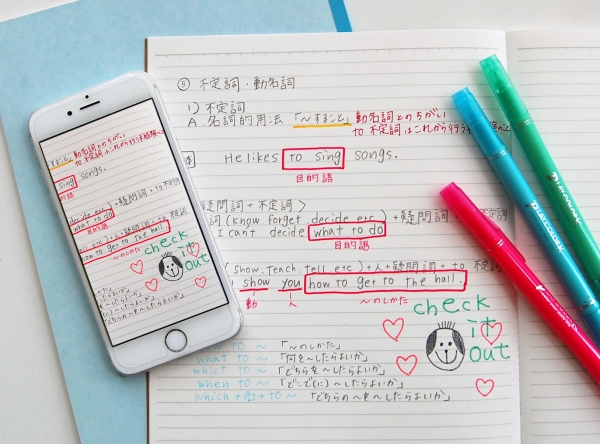 ⑤ 不定詞・動名詞
1) 不定詞
A. 名詞的用法 「～すること」 動名詞とのちがい
to 不定詞はこれから行う
He likes to sing songs.
目的語
疑問詞+不定詞〉
詞 (know. forget. decide etc) + 疑問詞
I can't decide what to do
目的語
(show. teach. tell etc) + 人 + 疑問詞 + to 不定詞
show you how to get to the hall.
動 人 ～のしかた
check
it
out
TO ～ 「～のしかた」
what to ～ 「何を～したらよいか」
whict to ～ 「どちらを～したらよいか」
when to ～ 「どこで(に)～したらよいか」
which + 名 + to ～ 「どちらの～を～したらよいか」
すること」 動名詞とのちがい
to 不定詞はこれから行う
sing songs.
的語
decide etc) + 疑問詞
what to do
目的語
etc) + 人 + 疑問詞 + to 不定詞
how to get to the hall.
～のしかた
check
it
out
PLAYCOLOR
PLAYCOLOR